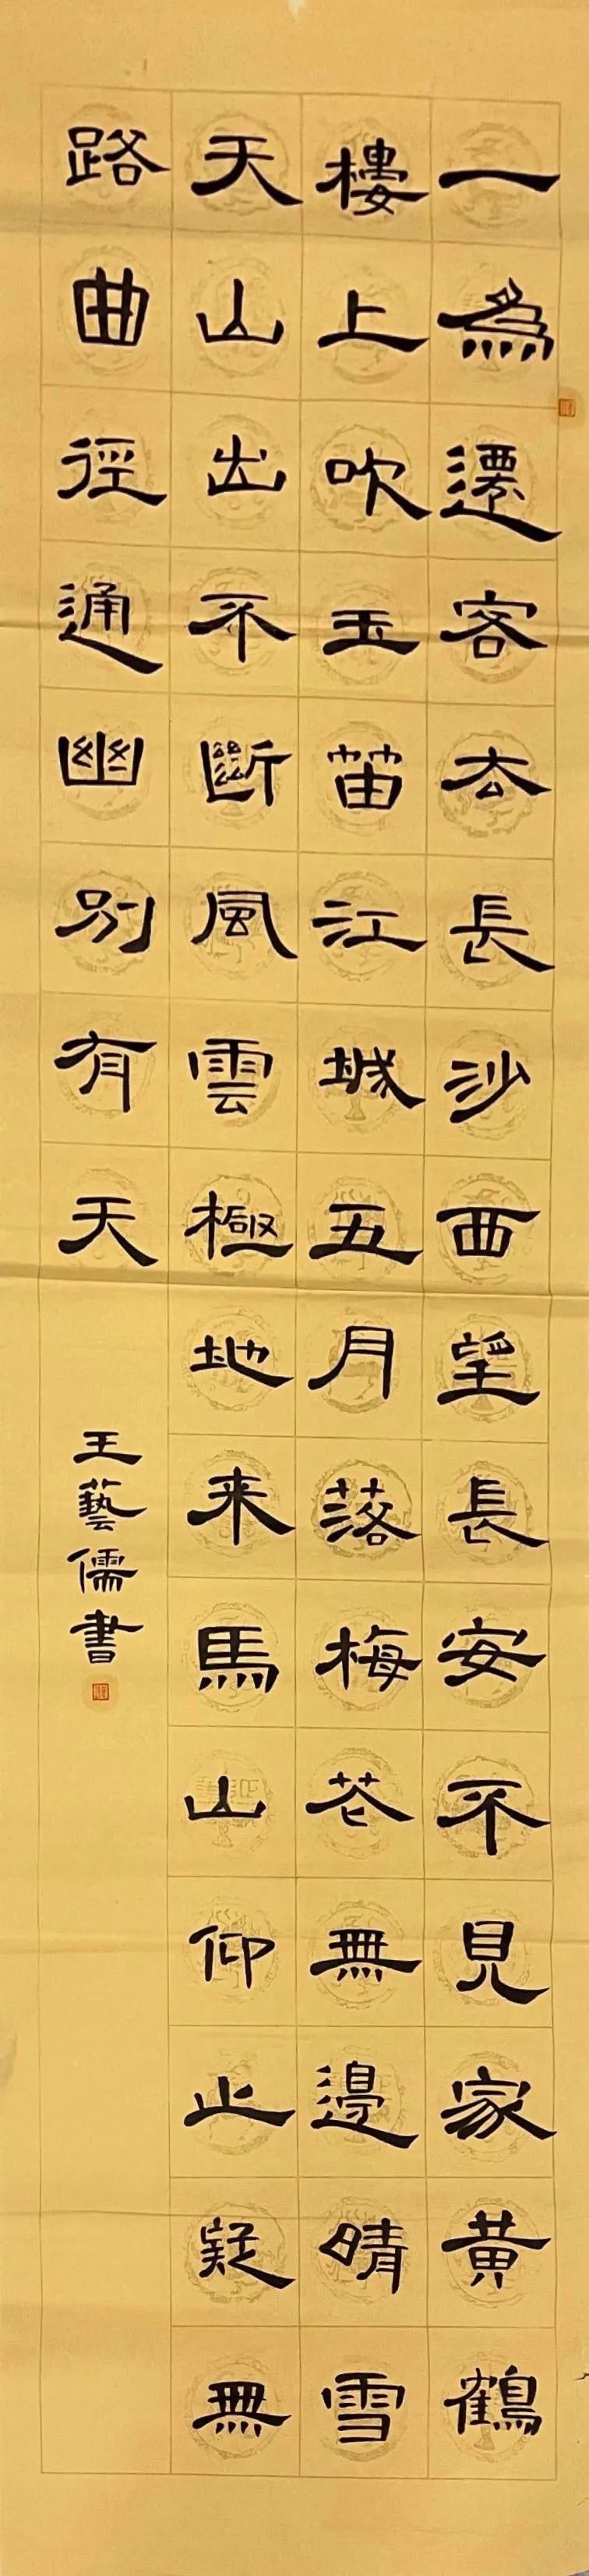 一為遷客去長沙西望長安不見家黃鶴
樓上吹玉笛江城五月落梅花無邊晴雪
天山出不斷風雲極地來馬山仰止疑無
路曲徑通幽別有天
王藝儒書